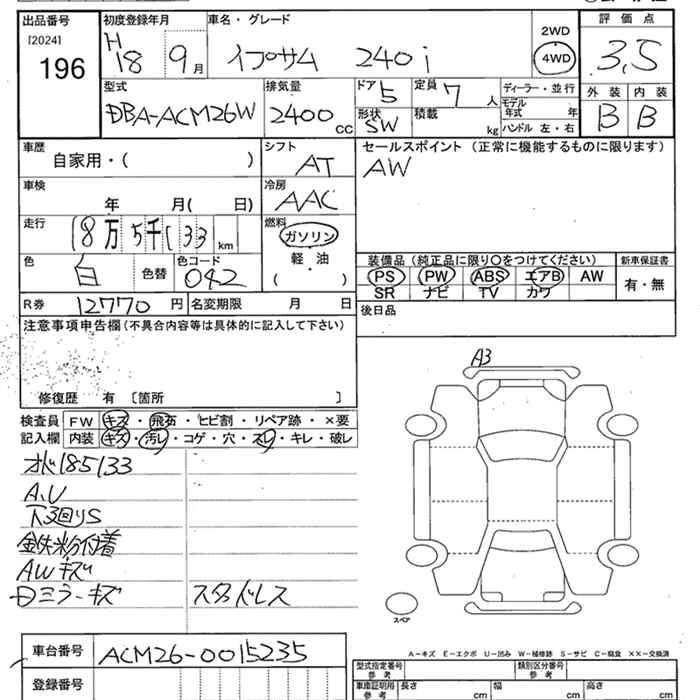 出品番号 初度登録年月 車名・グレード 2WD 評価点
[2024] H
196 18 9月 イプサム 240i 4WD 3,5
型式 排気量 ドア 5 定員 7人 ディーラー・並行 外装 内装
DBA-ACM26W 2400cc 形状 SW 積載 kg モデル年式 年 B B
ハンドル 左・右
車歴 シフト セールスポイント(正常に機能するものに限ります)
自家用・( ) AT AW
車検 冷房
年 月( 日) AAC
走行 燃料
18万5千133km ガソリン
色 色コード 軽油 装備品(純正品に限り〇をつけてください) 新車保証書
白 色替 042 ( ・ ) PS PW ABS エアB AW 有・無
SR ナビ TV カワ
R券 12770円 名変期限 月 日 後日品
注意事項申告欄(不具合内容等は具体的に記入して下さい)
修復歴 有〔箇所 〕
A3
検査員 FW キズ・飛石・ヒビ割・リペア跡・×要
記入欄 内装 キズ・汚レ・コゲ・穴・スレ・キレ・破レ
185133
A.U
下廻りS
鉄粉付着
AWキズ
ミラーキズ スタドレス
スペア
A-キズ E-エクボ U-凹み W-補修跡 S-サビ C-腐食 ××-交換済
車台番号 ACM26-0015235
型式指定番号参考 類別区分番号参考
登録番号 車庫証明用参考 長さ cm 幅 cm 高さ cm